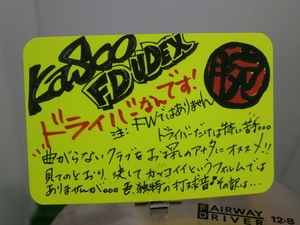 Kasco
FD UDEX
腕
ドライバーなんです!
注:FWではありません
ドライバーだけは特に苦手...
曲がらないクラブをお探しのアナタにオススメ!!
見てのとおり、決してカッコイイというフォルムでは
ありませんが...
独特の打球音♪その飲は...
FAIRWAY
DRIVER 12-8